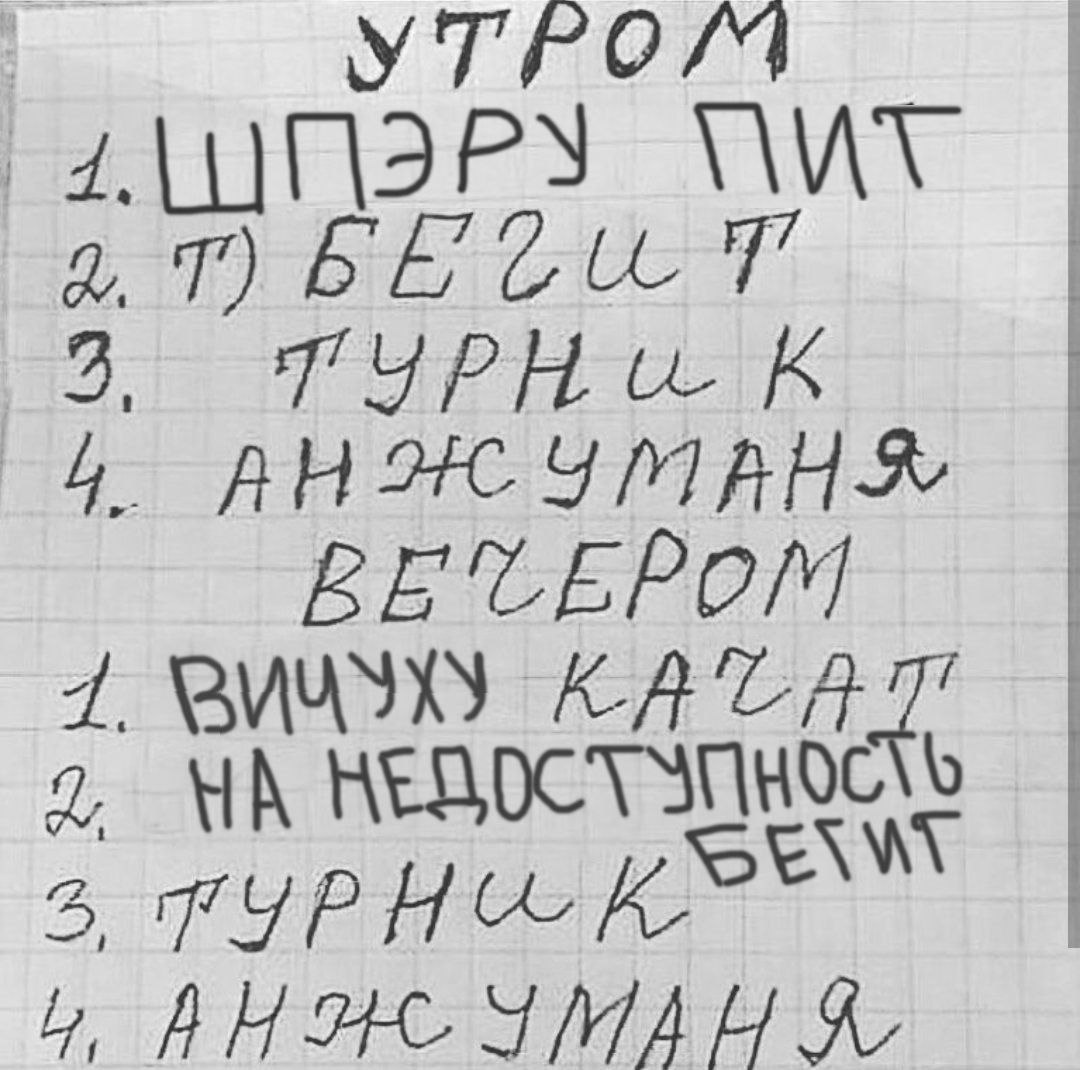 УТРОМ
1. ШПЭРУ ПИТ
2. Т) БЕГИТ
3. ТУРНИК
4. АНЖУМАНЯ
ВЕЧЕРОМ
1. ВИЧУХУ КАЧАТ
2. НА НЕДОСТУПНОСТЬ
БЕГИТ
3. ТУРНИК
4. АНЖУМАНЯ